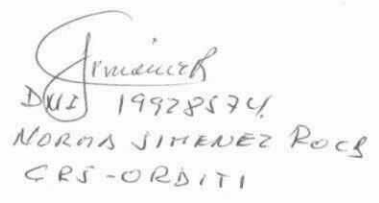 DNI 19928574
NORMA JIMENEZ ROCA
CRS-ORDITI